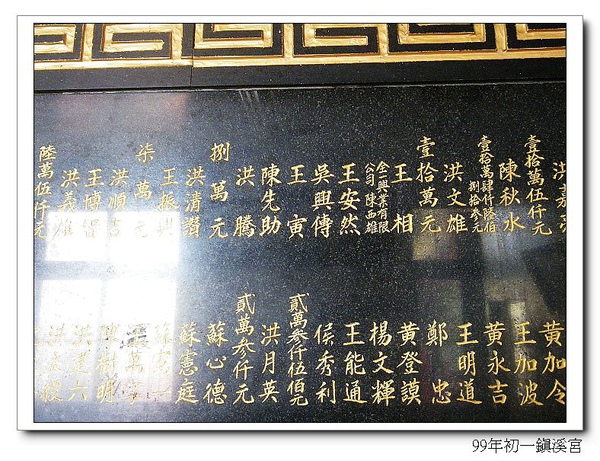 壹拾萬伍仟元
陳秋水
壹拾萬肆仟陸佰
捌拾參元
洪文雄
壹拾萬元
王相
金興業有限
公司 陳西雄
王安然
吳興傳
王寅
陳先助
洪騰
捌萬元
洪清讚
王振興
柒萬元
洪順吉
王博智
洪義雄
陸萬伍仟元
黃加令
王加波
黃永吉
王明道
鄭忠
黃登謨
楊文輝
王能通
侯秀利
貳萬參仟伍佰元
洪月英
貳萬參仟元
蘇心德
蘇憲庭
99年初一鎮溪宮